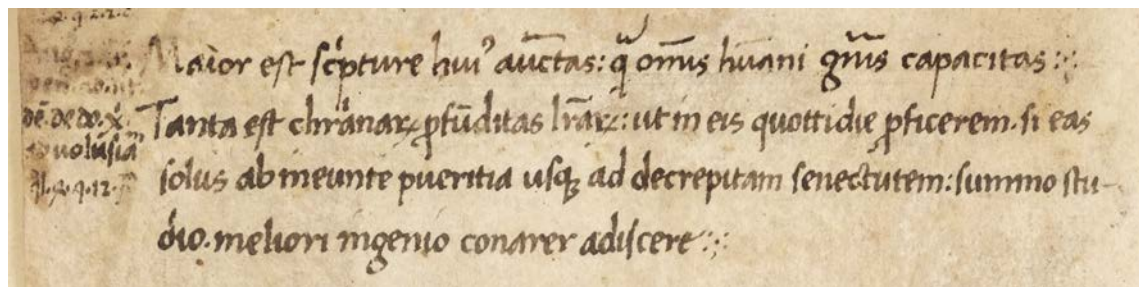 Maior est sc͛pture hui᾽ auc̅tas: qᷓ om̅is hūani gn̅is capacitas :·
Tanta est chr̅ianaꝝ ꝓfūditas lr̅aꝝ: ut in eis quottidie ꝓficerem. si eas
solus ab ineunte pueritia usqꝫ ad decrepitam senectutem: summo stu-
dio. meliori ingenio conarer adiscere :·